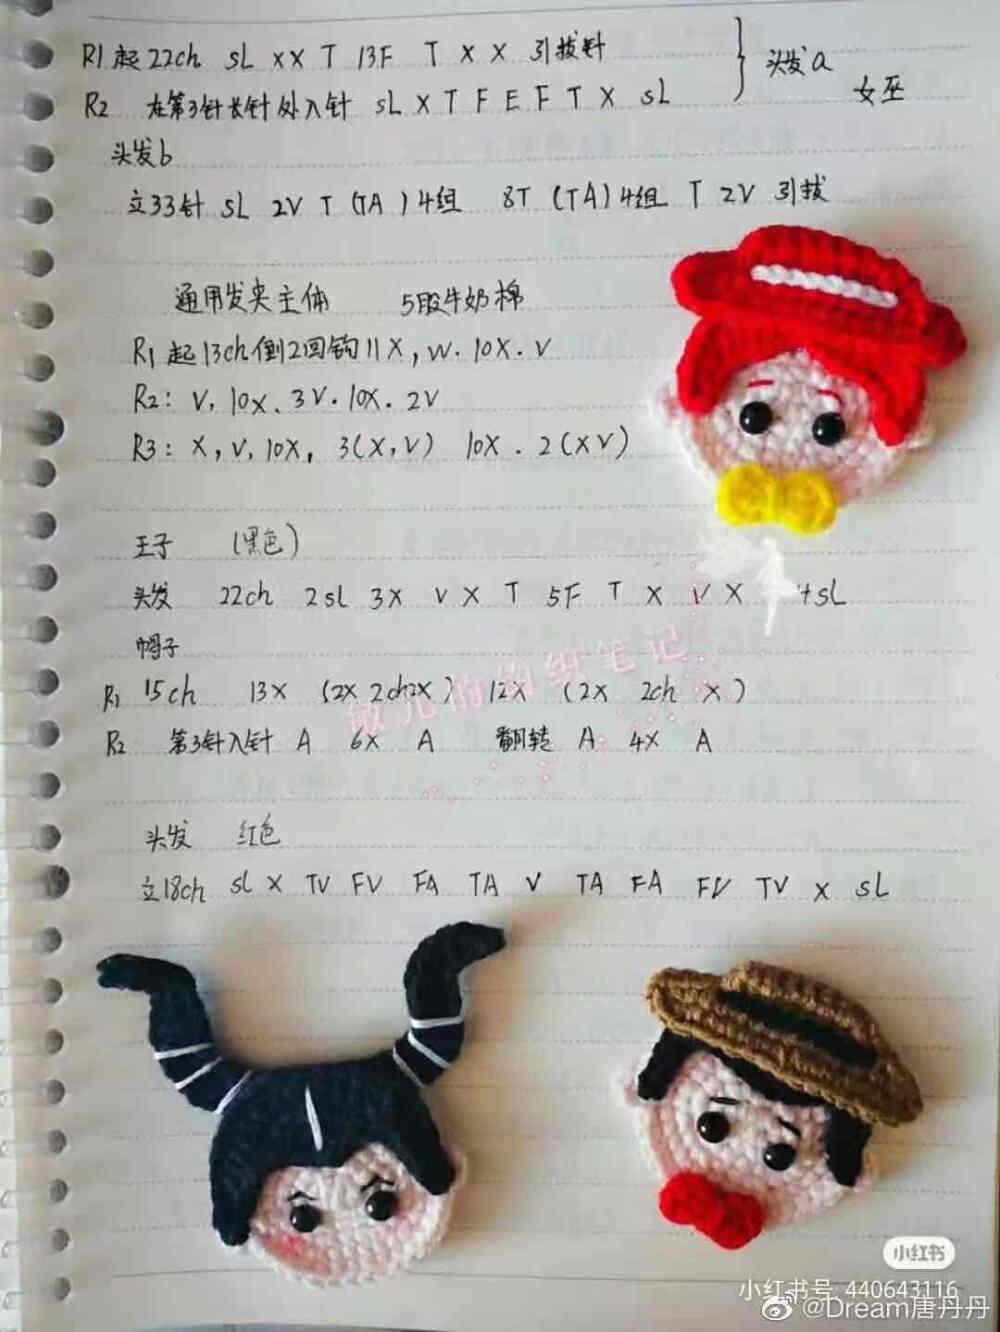 R1 起22ch sL xx T 13F T X X 引拔针
头发a
女巫
R2 在第3针长针处入针 sL X T F E F T X sL
头发b
立33针 sL 2V T (TA)4组 8T (TA)4组 T 2V 引拔
通用发夹主体 5股牛奶棉
R1 起13ch倒2回钩11X, W. 10X. V
R2: V, 10X. 3V. 10X. 2V
R3: X, V, 10X, 3(X,V) 10X. 2(XV)
王子 (黑色)
头发 22ch 2sL 3X V X T 5F T X V X sL
帽子
R1 15ch 13X (2X 2ch2X) 12X (2X 2ch X)
R2 第3针入针 A 6X A 翻转 A 4X A
头发 红色
立18ch sL X TV FV FA TA V TA FA FV TV X sL
小红书
小红书号: 440643116
@Dream唐丹丹